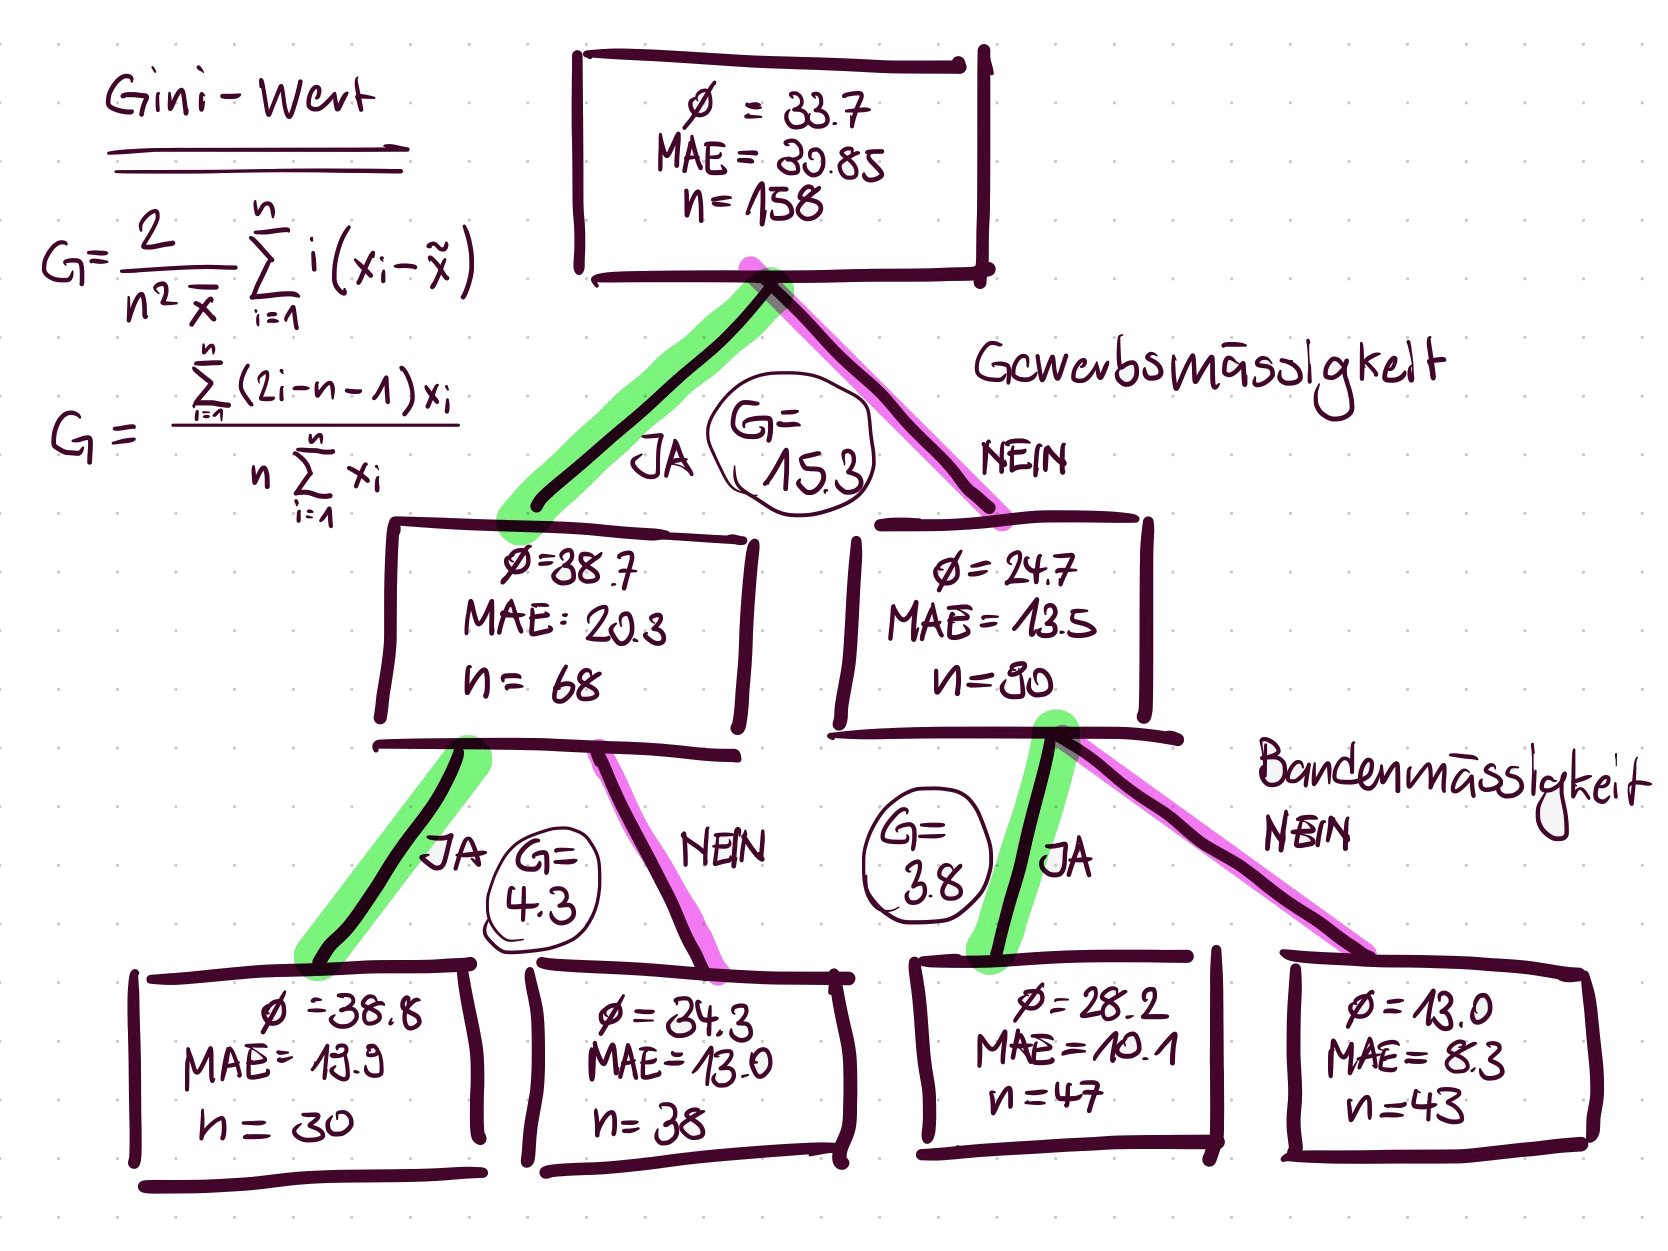 Gini-Wert
G = 2 / (n² x̄) ∑_{i=1}^{n} i (xᵢ - x̃)
G = ∑_{i=1}^{n} (2i - n - 1) xᵢ / (n ∑_{i=1}^{n} xᵢ)
Ø = 33.7
MAE = 30.85
n = 158
Gewerbsmässigkeit
JA
G = 15.3
NEIN
Ø = 38.7
MAE: 20.3
n = 68
Ø = 24.7
MAE = 13.5
n = 90
Bandenmässigkeit
JA
G = 4.3
NEIN
G = 3.8
JA
NEIN
Ø = 38.8
MAE = 19.9
n = 30
Ø = 34.3
MAE = 13.0
n = 38
Ø = 28.2
MAE = 10.1
n = 47
Ø = 13.0
MAE = 8.3
n = 43